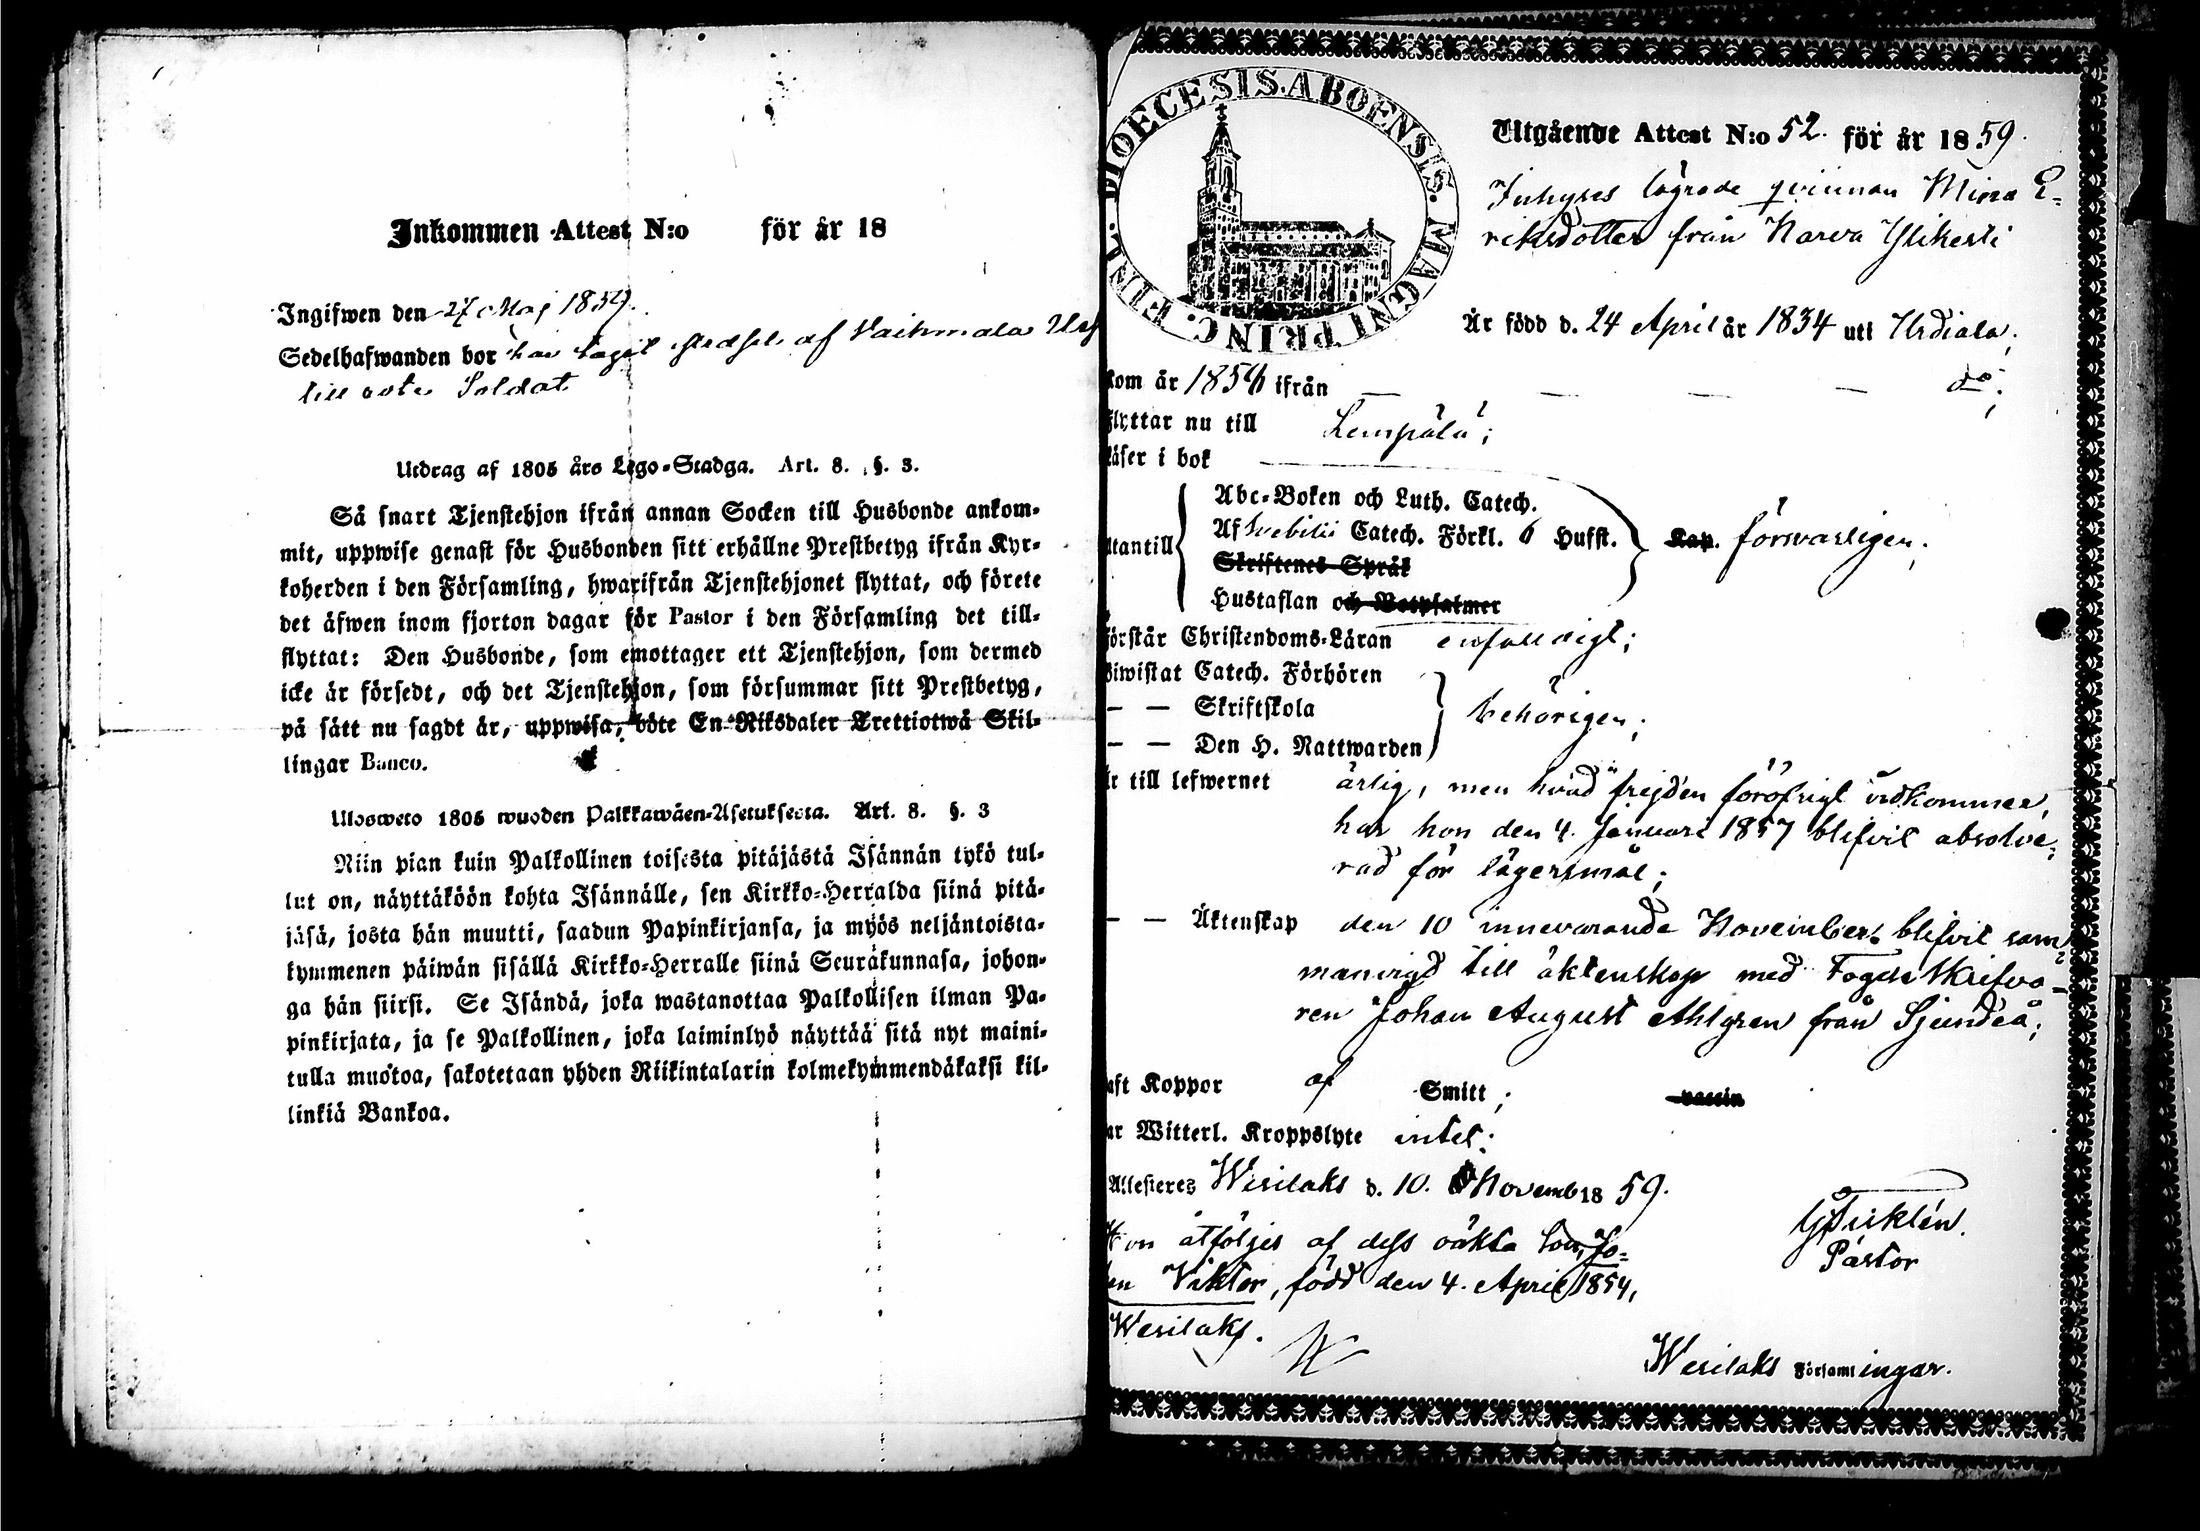 Inkommen Attest N:o för år 18
Ingifwen den 27 Maj 1859.
Sedelhafwanden bor har tagit städsel af Vaihmala
till rote Soldat
Utdrag af 1805 års Lego-Stadga. Art. 8. §. 3.
Så snart Tjenstehjon ifrån annan Socken till Husbonde ankom-
mit, uppwise genast för Husbonden sitt erhållne Prestbetyg ifrån Kyr-
koherden i den Församling, hwarifrån Tjenstehjonet flyttat, och förete
det äfwen inom fjorton dagar för Pastor i den Församling det till-
flyttat: Den Husbonde, som emottager ett Tjenstehjon, som dermed
icke är försedt, och det Tjenstehjon, som försummar sitt Prestbetyg,
på sätt nu sagdt är, uppwisa, böte En Riksdaler Trettiotwå Skil-
lingar Banco.
Ulosweto 1805 wuoden Palkkawäen-Asetuksesta. Art. 8. §. 3
Niin pian kuin Palkollinen toisesta pitäjästä Isännän tykö tul-
lut on, näyttäköön kohta Isännälle, sen Kirkko-Herralda siinä pitä-
jäsä, josta hän muutti, saadun Papinkirjansa, ja myös neljäntoista-
kymmenen päiwän sisällä Kirkko-Herralle siinä Seurakunnasa, johon-
ga hän siirsi. Se Isändä, joka wastanottaa Palkollisen ilman Pa-
pinkirjata, ja se Palkollinen, joka laiminlyö näyttää sitä nyt maini-
tulla muotoa, sakotetaan yhden Riikintalarin kolmekymmendäkaksi kil-
linkiä Bankoa.
DIOECESIS. ABOENSIS. MAGNI PRINC. FINL.
Utgående Attest N:o 52. för år 1859.
Inhyses lägrade qvinnan Mina E-
riksdotter från Narva Ylikesti
Är född d. 24 April år 1834 uti Urdiala;
kom år 1856 ifrån — — — — do;
flyttar nu till Lempälä;
läser i bok
utantill Abc-Boken och Luth. Catech.
Af Svebilii Catech. Förkl. 6 Hufst. Kap. förswarligen;
Skriftenes Språk
Hustaflan och Botpsalmer
förstår Christendoms-Läran enfaldigt;
Biwistat Catech. Förhören
— — Skriftskola behörigen;
— — Den H. Nattwarden
är till lefwernet ärlig, men hvad frejden föröfrigt vidkommer,
har hon den 4. Januari 1857 blifvit absolve-
rad för lägersmål;
— — Äktenskap den 10 innevarande November blifvit sam-
manvigd till äktenskap med Fogde Skrifva-
ren Johan August Ahlgren från Sjundeå;
aft Koppor af Smitt; vaccin
ar Witterl. Kroppslyte intet;
Attesteres Wesilaks d. 10. Novemb 1859.
Hon åtföljes af dess oäkta son, Jo-
han Viktor, född den 4. April 1854,
Pastor
Wesilaks.
Wesilaks Församlingar.